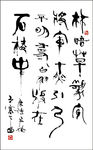 林暗草驚風
將軍夜引弓
平明尋白羽沒在
石棱中